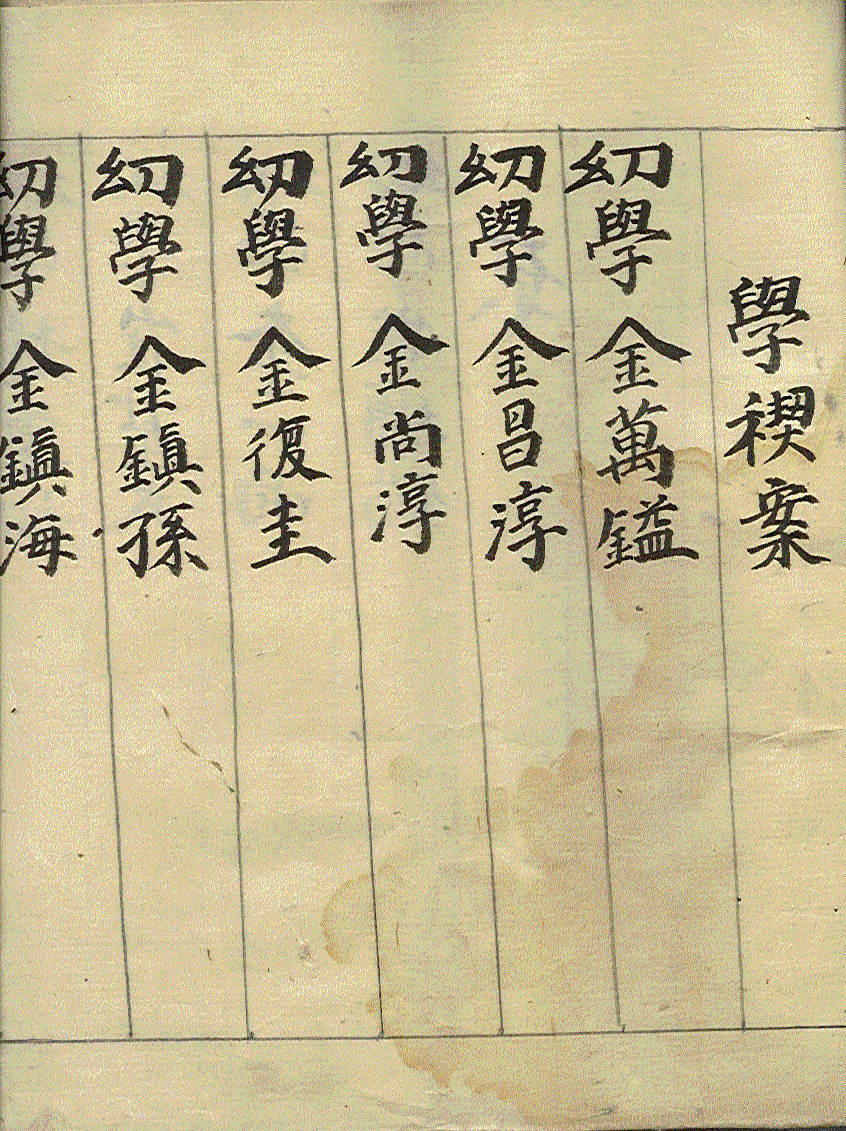 學禊案
幼學 金萬鎰
幼學 金昌淳
幼學 金尚淳
幼學 金復圭
幼學 金鎭孫
幼學 金鎭海